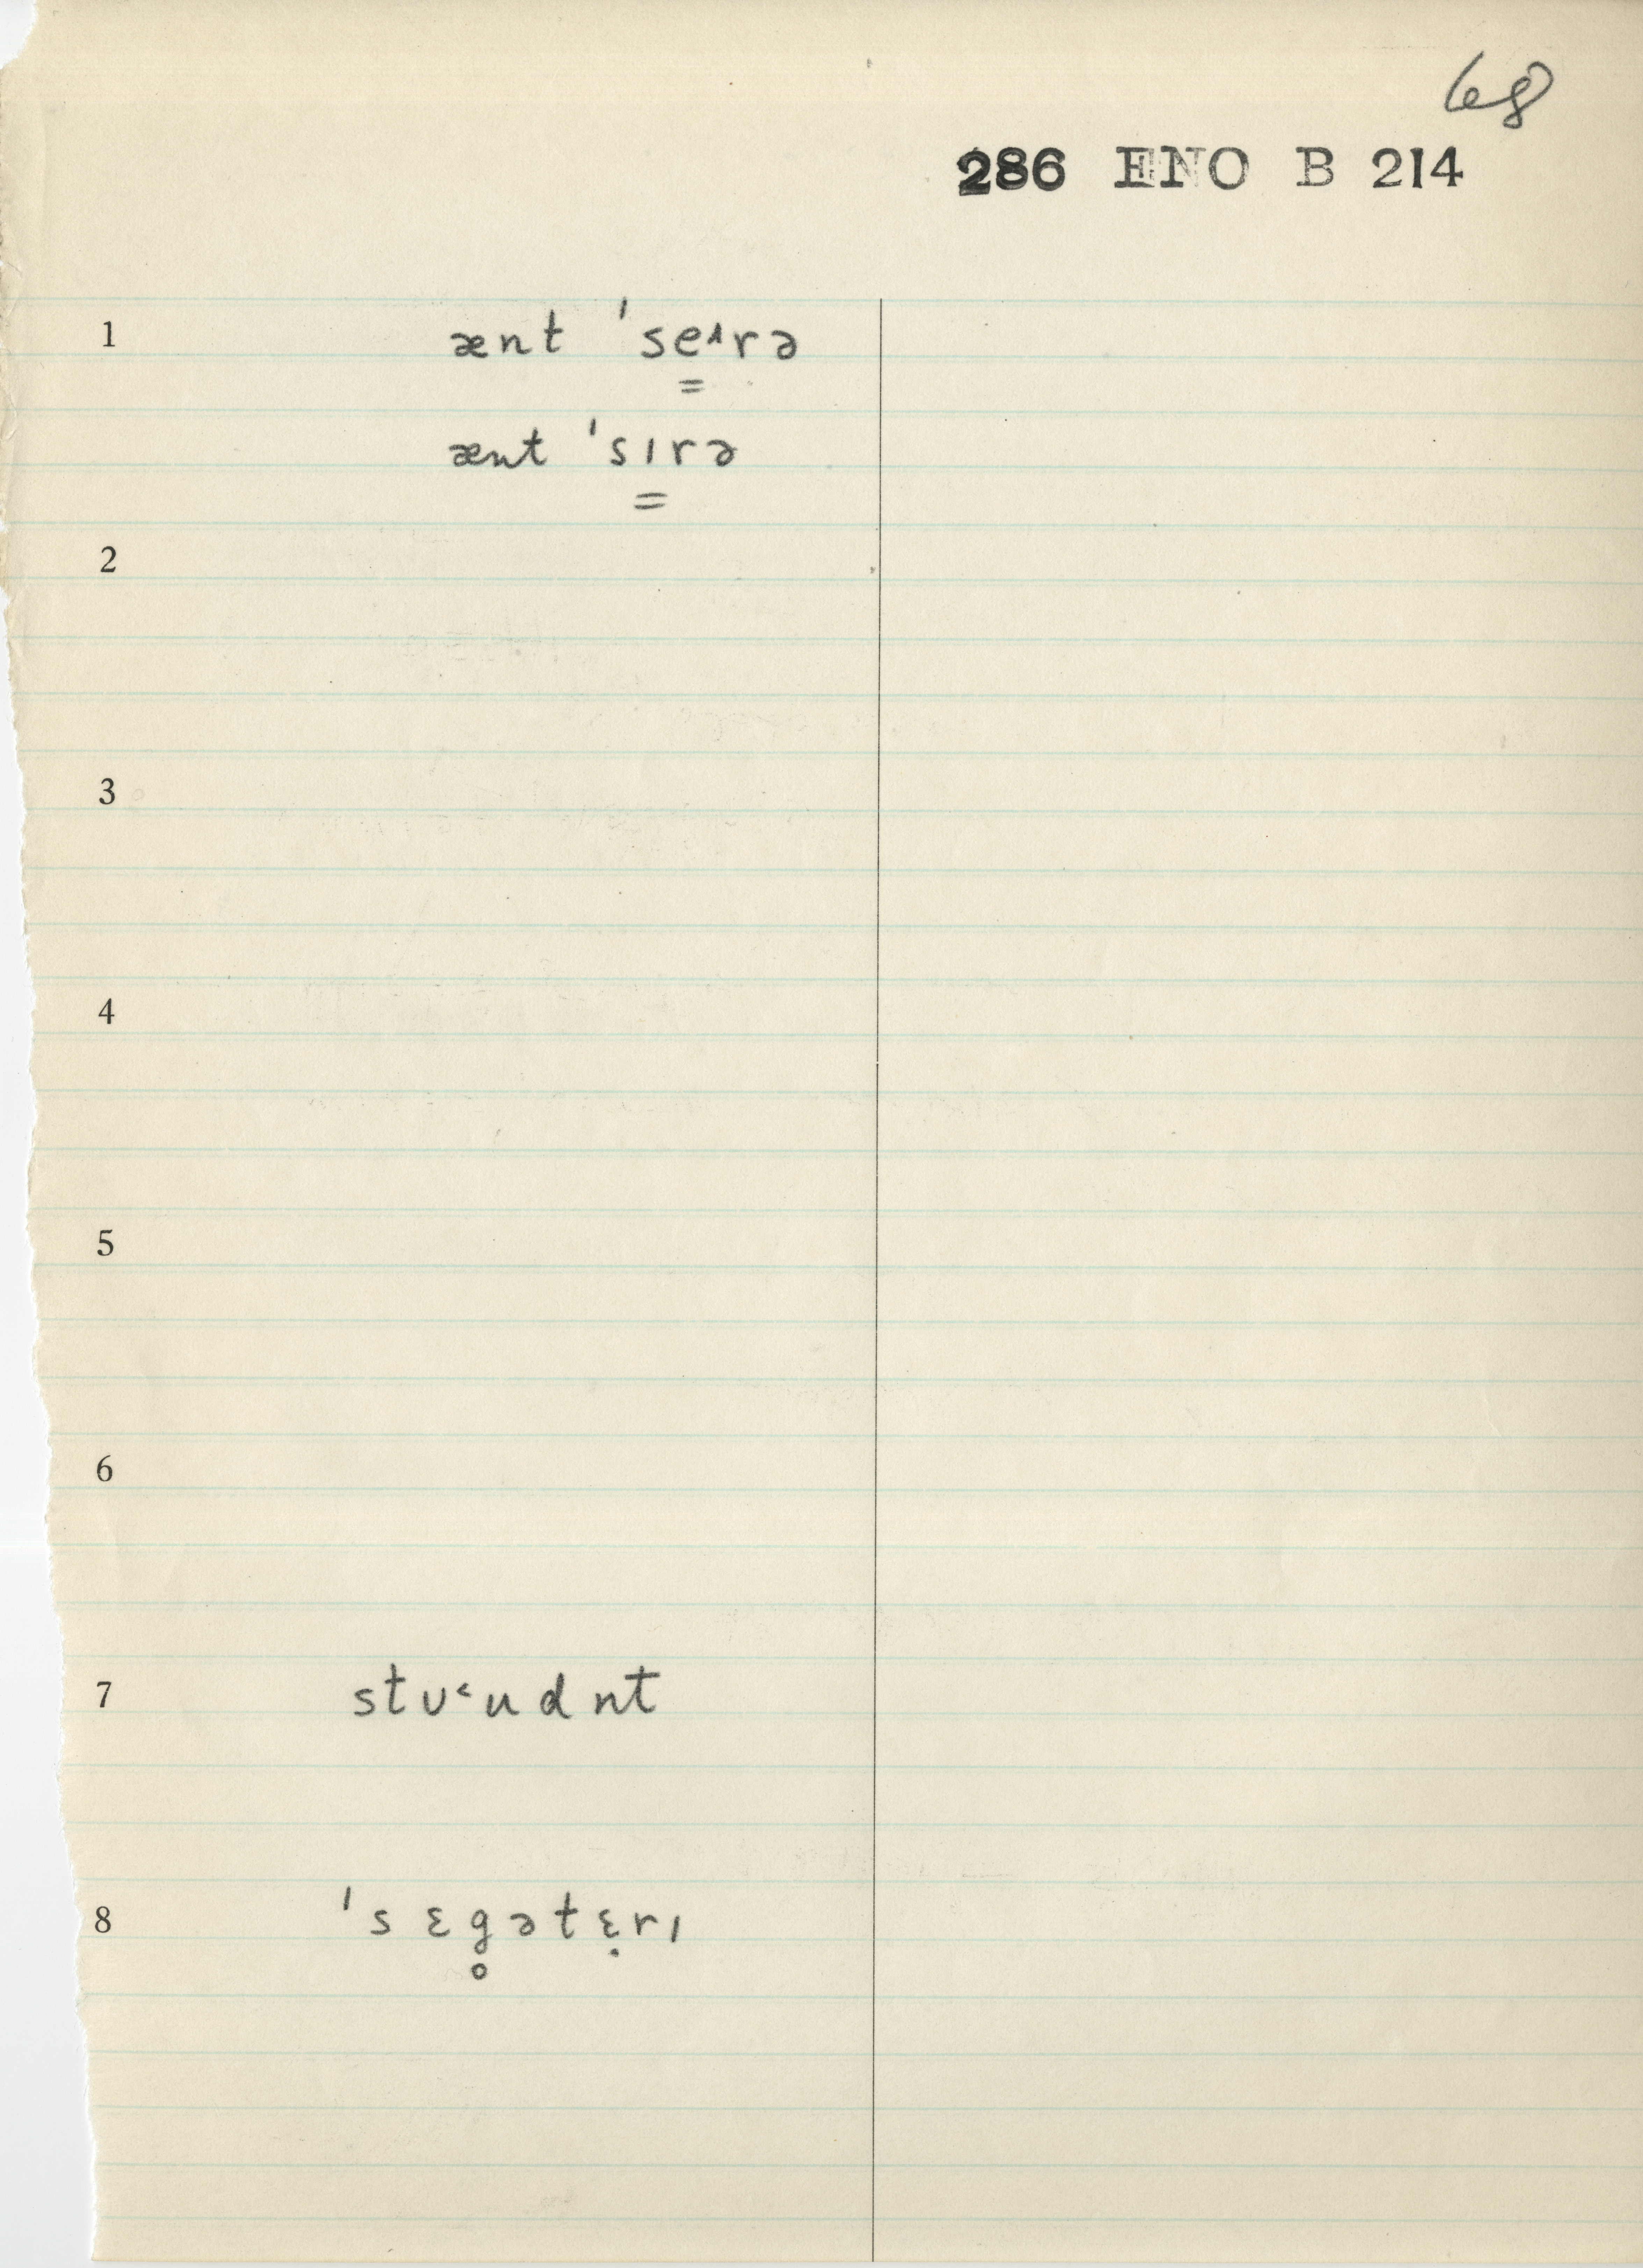 68
286 ENO B 214
1 ænt ˈse˄rə
=
ænt ˈsɪrə
=
2
3
4
5
6
7 stʊ˂udnt
8 ˈsɛg̥ətɛ̣rɪ